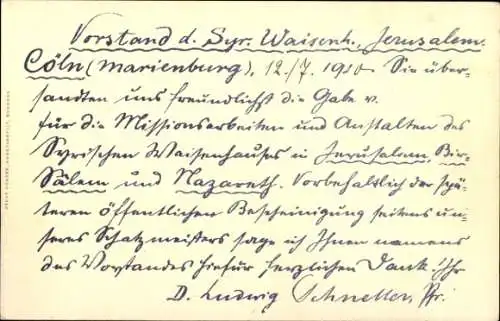 Vorstand d. Syr. Waisenh., Jerusalem.
Cöln (Marienburg), 12./7. 1910. Sie über-
sandten uns freundlichst die Gabe v.
für die Missionsarbeiten und Anstalten des
Syrischen Waisenhauses in Jerusalem, Bir-
Sâlem und Nazareth. Vorbehaltlich der spä-
teren öffentlichen Bescheinigung seitens un-
seres Schatzmeisters sage ich Ihnen namens
des Vorstandes hiefür herzlichen Dank! Ihr
D. Ludwig Schneller, Pfr.